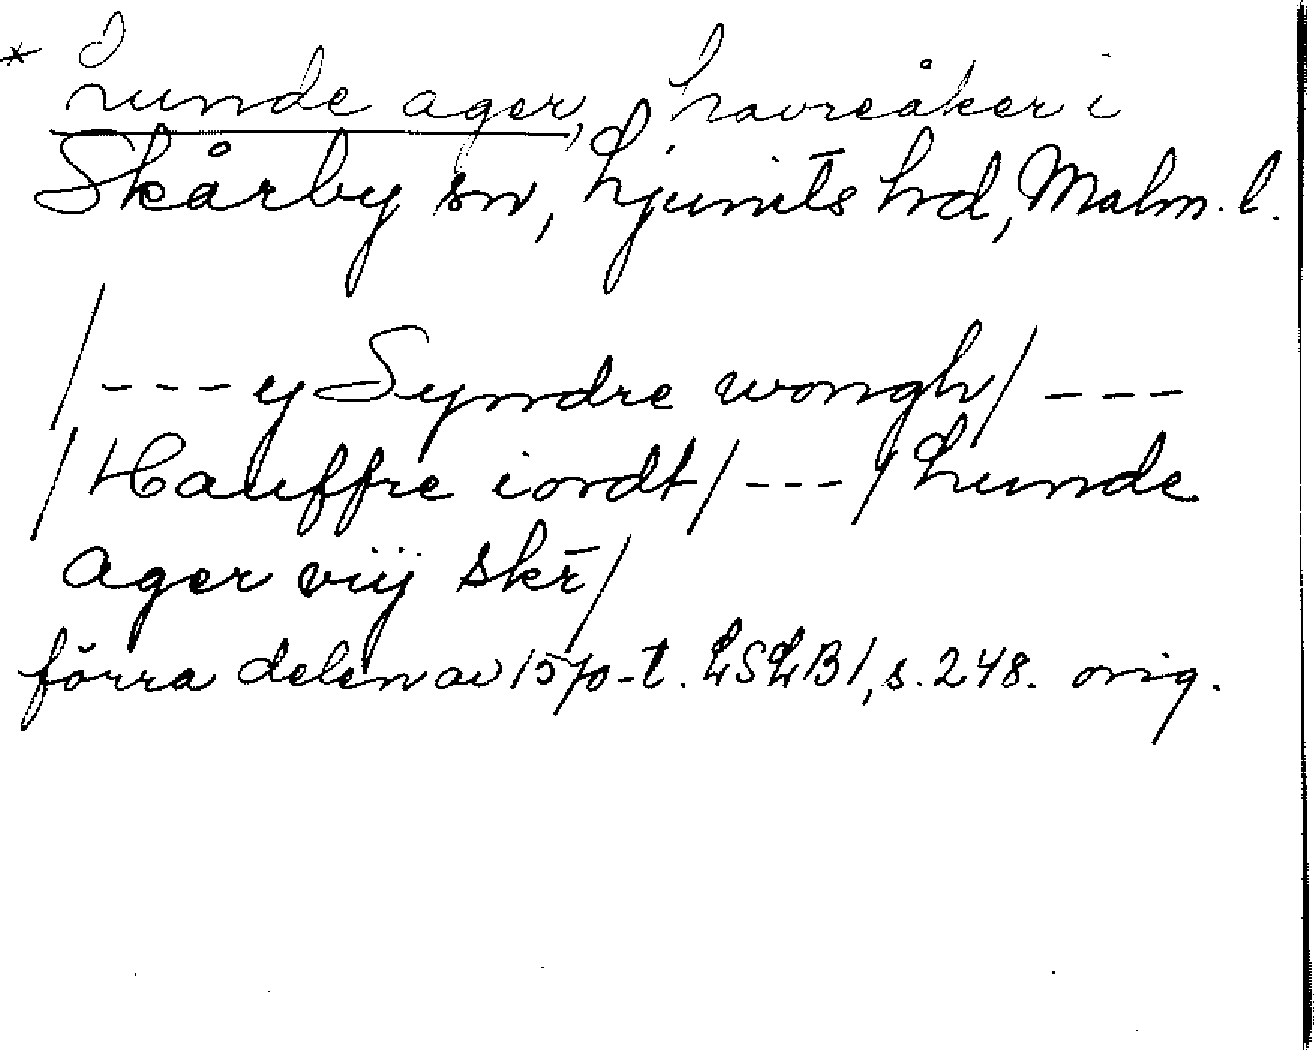 * Lunde ager, havreåker i
Skårby sn, Ljunits hd, Malm. l.
/--- y Syndre wongh/ ---
/Hauffre iordt/ --- /Lunde
Ager viij skr̄/
förra delen av 1570-t. LSLB1, s. 248. orig.